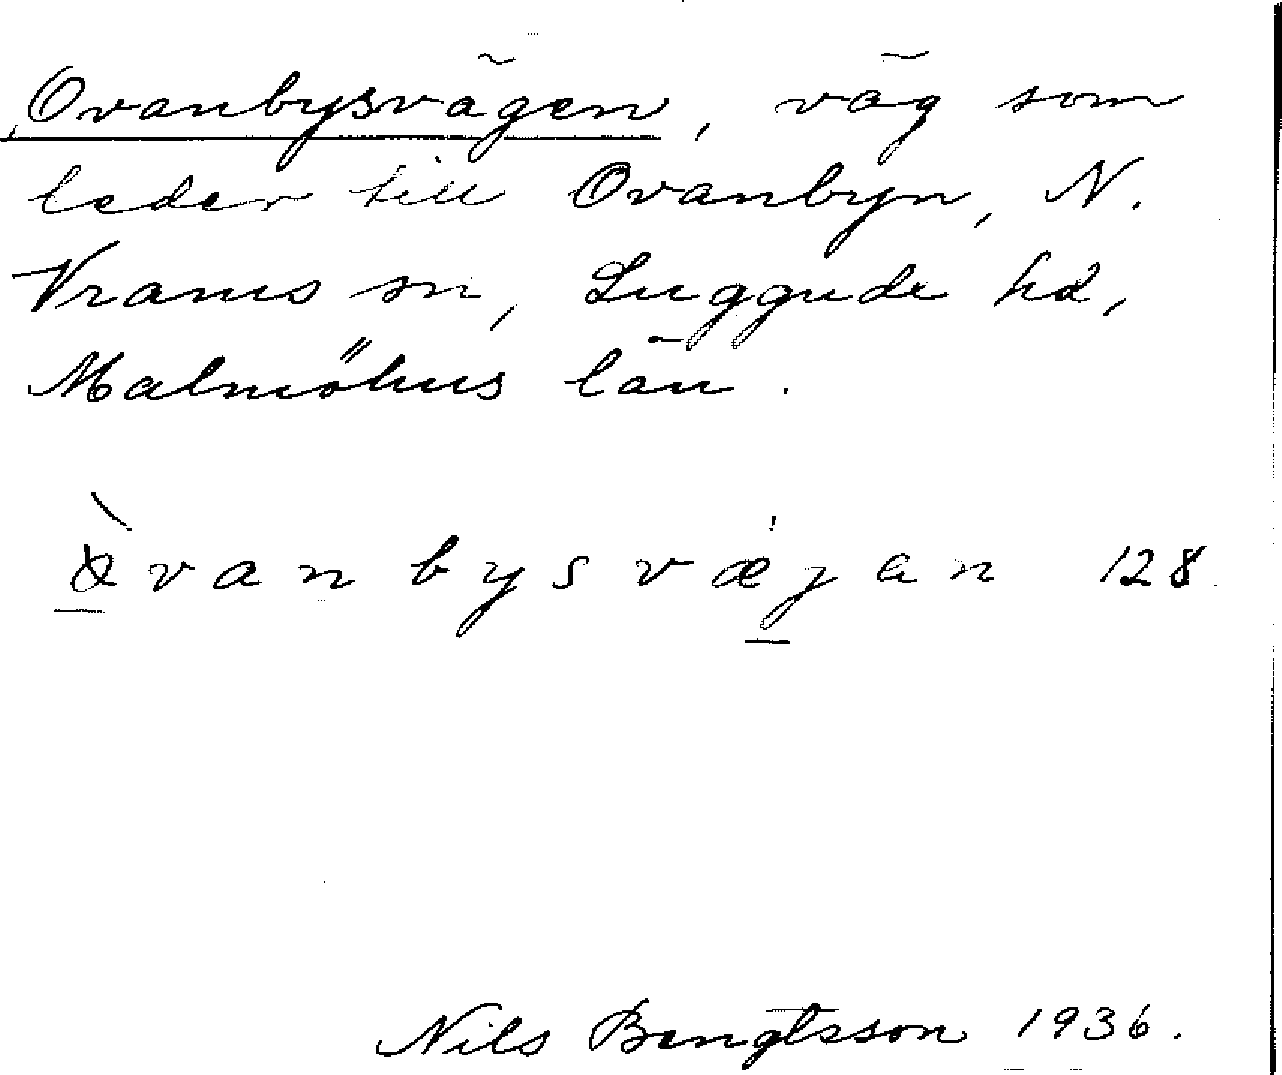 Ovanbysvägen, väg som
leder till Ovanbyn, N.
Vrams sn, Luggude hd,
Malmöhus län.
vanbysvæjan 128
Nils Bengtsson 1936.